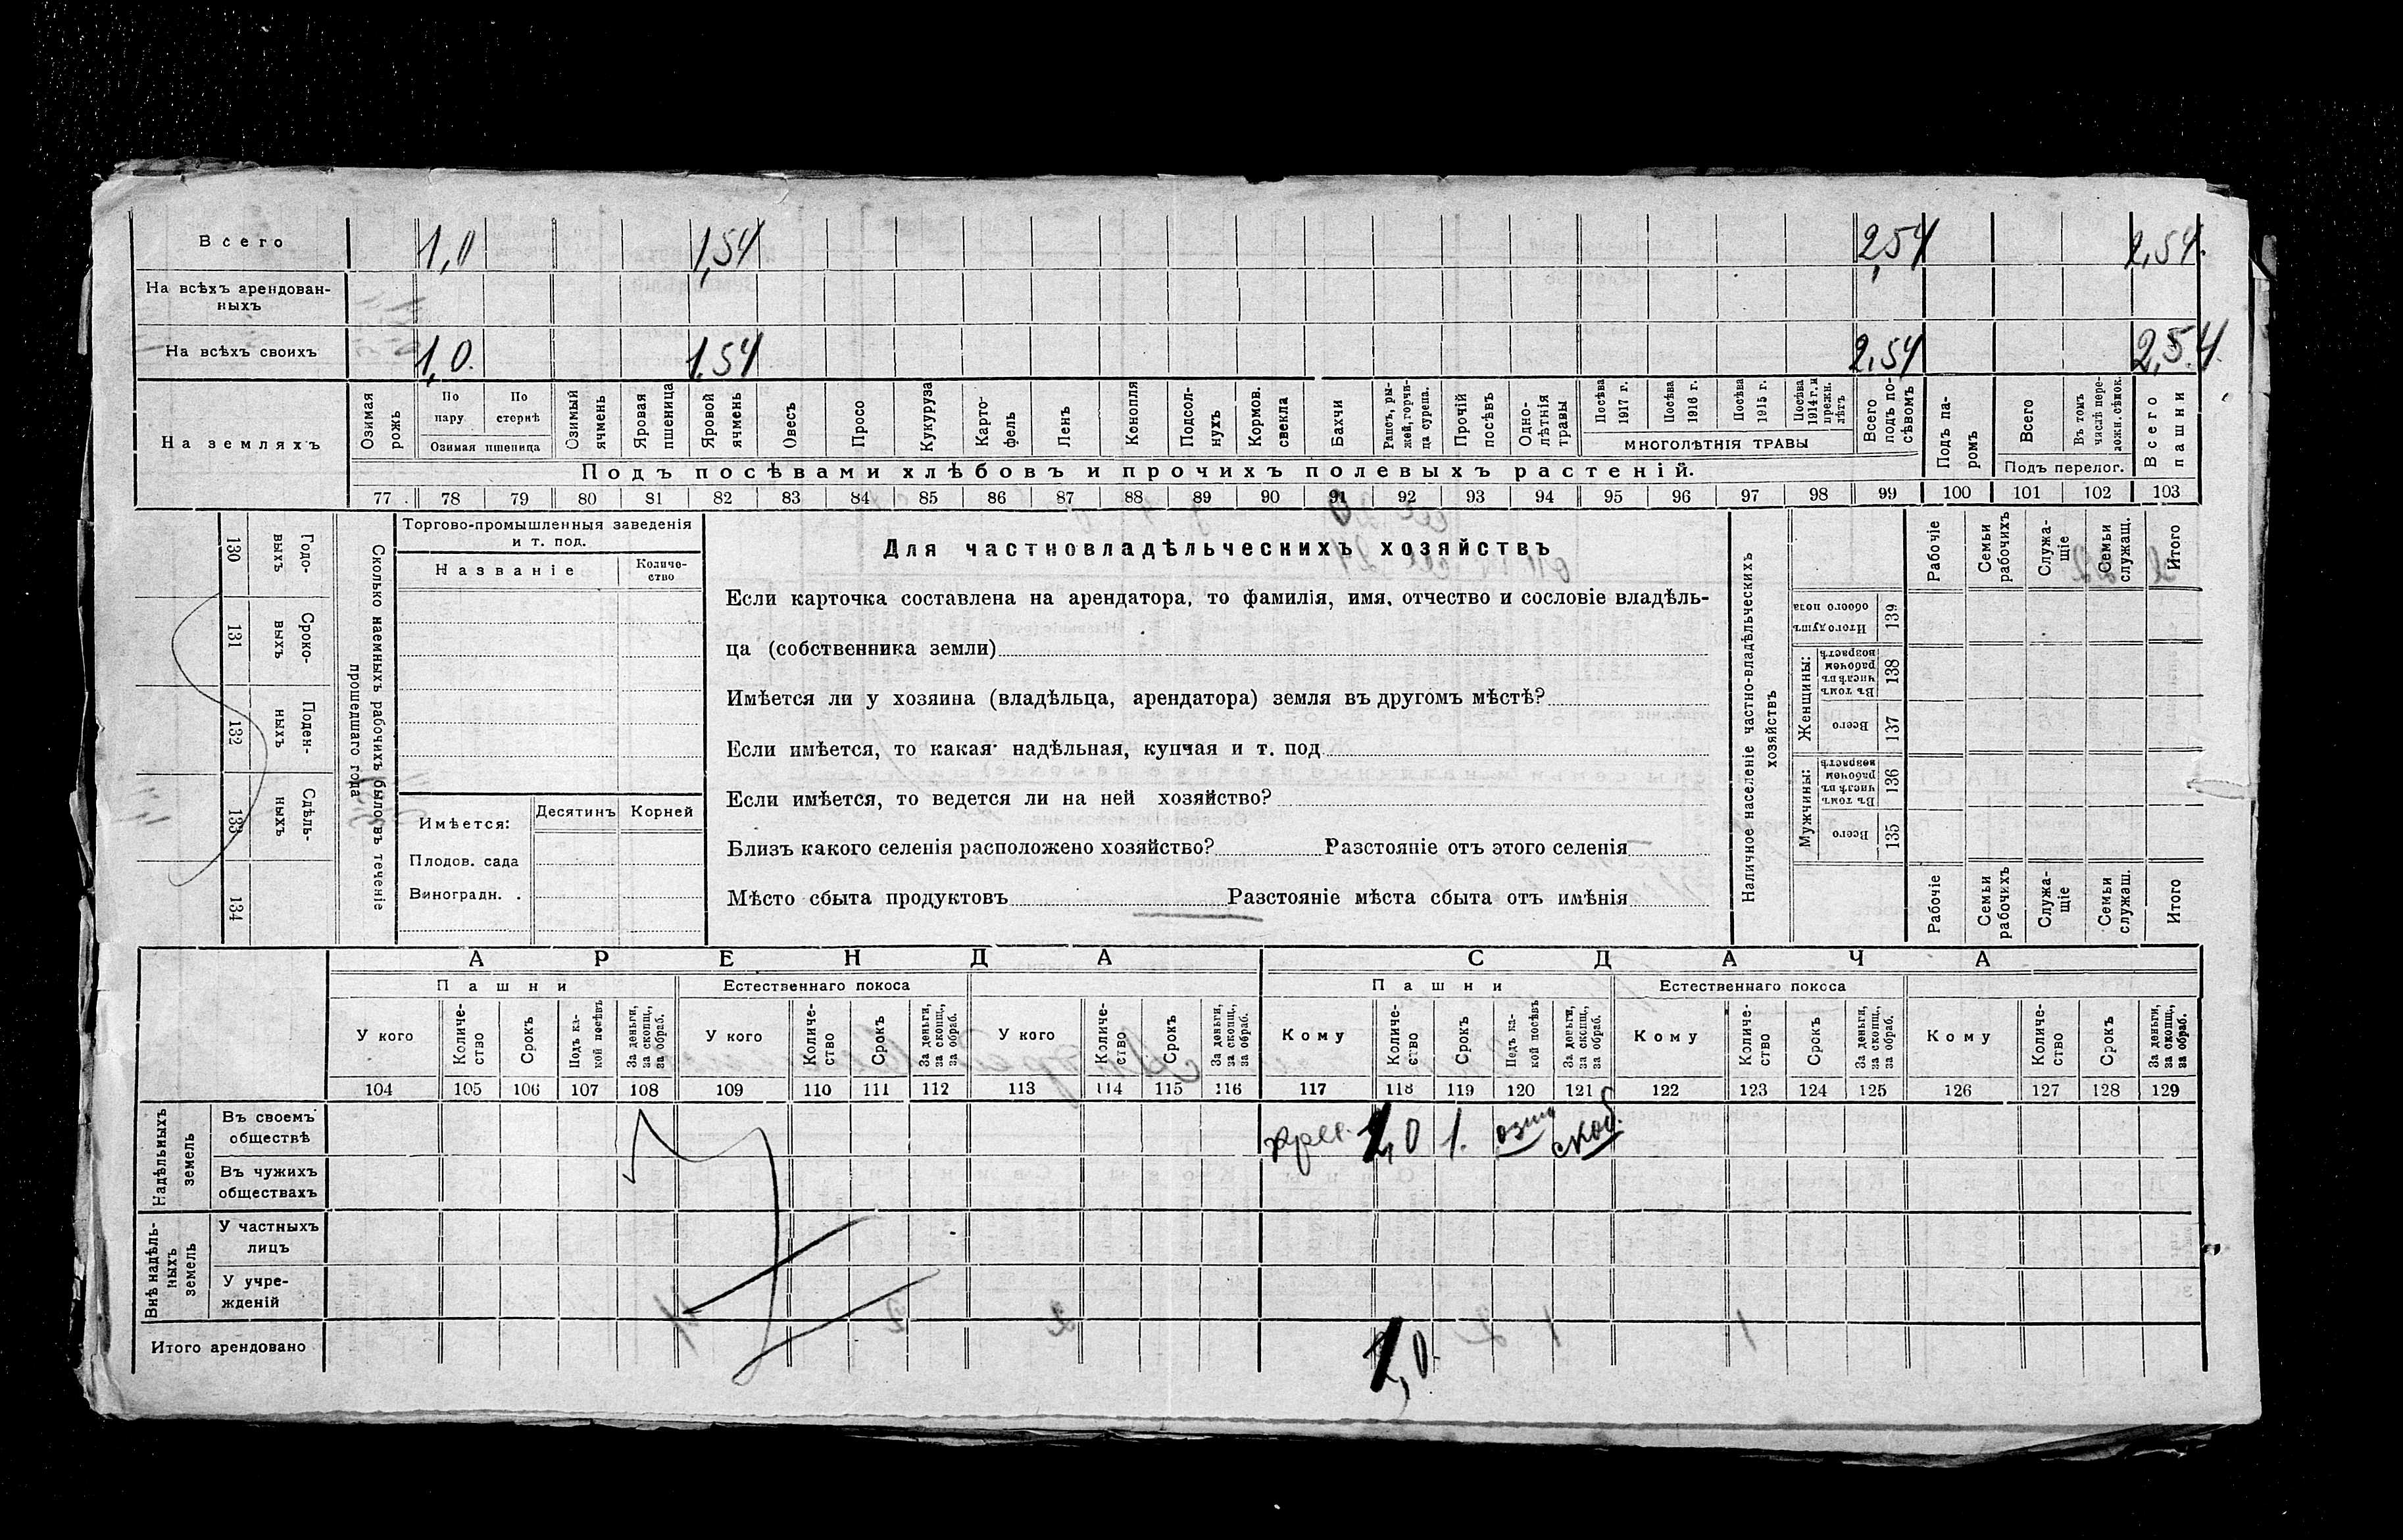 Всего 1,0 1,54 2,54 2,54.
На всѣхъ арендован-
ныхъ
На всѣхъ своихъ 1,0. 1,54 2,54 2,54.
На земляхъ
Озимая рожь
По пару
По стернѣ
Озимая пшеница
Озимый ячмень
Яровая пшеница
Яровой ячмень
Овесъ
Просо
Кукуруза
Карто-
фель
Ленъ
Конопля
Подсол-
нухъ
Кормов. свекла
Бахчи
Рапсъ, ры-
жей, горчи-
ца сурепа.
Прочій посѣвъ
Одно-
лѣтнія
травы
Посѣва 1917 г.
Посѣва 1916 г.
Посѣва 1915 г.
Посѣва 1914 г. и прежн. лѣтъ
МНОГОЛѢТНІЯ ТРАВЫ
Всего подъ по-
сѣвомъ
Подъ па-
ромъ
Всего
Въ томъ числѣ пере-
ложн. сѣнок.
Подъ перелог.
Всего пашни
Подъ посѣвами хлѣбовъ и прочихъ полевыхъ растеній.
77 78 79 80 81 82 83 84 85 86 87 88 89 90 91 92 93 94 95 96 97 98 99 100 101 102 103
130 Годо-
выхъ
131 Сроко-
выхъ
132 Поден-
ныхъ
133 Сдѣль-
ныхъ
134
Сколько наемныхъ рабочихъ было въ теченіе
прошедшаго года
Торгово-промышленныя заведенія
и т. под.
Названіе
Количе-
ство
Имѣется:
Десятинъ Корней
Плодов. сада
Виноградн. .
Для частновладѣльческихъ хозяйствъ
Если карточка составлена на арендатора, то фамилія, имя, отчество и сословіе владѣль-
ца (собственника земли)
Имѣется ли у хозяина (владѣльца, арендатора) земля въ другомъ мѣстѣ?
Если имѣется, то какая· надѣльная, купчая и т. под
Если имѣется, то ведется ли на ней хозяйство?
Близъ какого селенія расположено хозяйство? Разстояніе отъ этого селенія
Мѣсто сбыта продуктовъ Разстояніе мѣста сбыта отъ имѣнія
Наличное населеніе частно-владѣльческихъ
хозяйствъ
Рабочіе
Семьи рабочихъ
Служа-
щіе
Семьи служащ.
Итого
Итого душъ обоего пола 139
Женщины:
Въ томъ числѣ въ рабочемъ возрастѣ 138
Всего 137
Мужчины:
Въ томъ числѣ въ рабочемъ возрастѣ 136
Всего 135
Рабочіе
Семьи рабочихъ
Служа-
щіе
Семьи служащ.
Итого
АРЕНДА СДАЧА
Пашни Естественнаго покоса Пашни Естественнаго покоса
У кого
Количе-
ство
Срокъ
Подъ ка-
кой посѣвъ
За деньги, за скопщ., за обраб.
У кого
Количе-
ство
Срокъ
За деньги, за скопщ., за обраб.
У кого
Количе-
ство
Срокъ
За деньги, за скопщ., за обраб.
Кому
Количе-
ство
Срокъ
Подъ ка-
кой посѣвъ
За деньги, за скопщ., за обраб.
Кому
Количе-
ство
Срокъ
За деньги, за скопщ., за обраб.
Кому
Количе-
ство
Срокъ
За деньги, за скопщ., за обраб.
104 105 106 107 108 109 110 111 112 113 114 115 116 117 118 119 120 121 122 123 124 125 126 127 128 129
Надѣльныхъ земель
Въ своемъ
обществѣ
1,0 1.
Въ чужихъ
обществахъ
Внѣ надѣль-
ныхъ земель
У частныхъ
лицъ
У учре-
жденій
Итого арендовано 1,0.